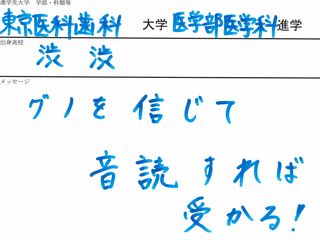 進学先大学 学部・科類等
東京医科歯科 大学 医学部医学科 進学
出身高校
渋渋
メッセージ
グノを信じて
音読すれば
受かる!